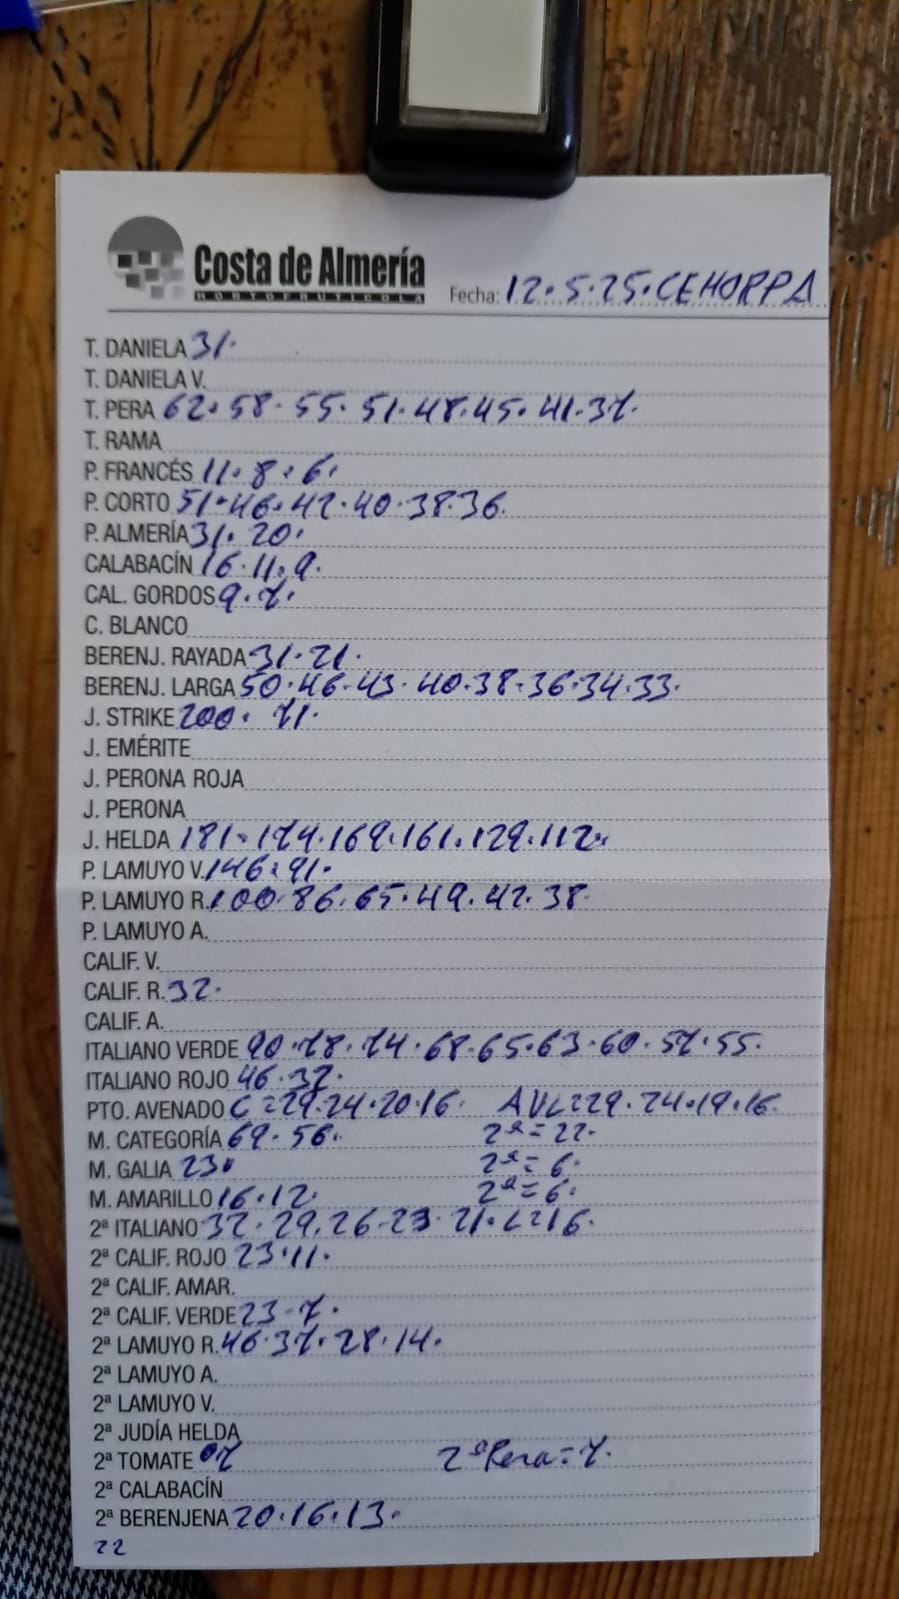 Costa de Almería
HORTOFRUTICOLA
Fecha: 12.5.25.CEHORPA
T. DANIELA 31.
T. DANIELA V.
T. PERA 62.58.55.51.48.45.41.37.
T. RAMA
P. FRANCÉS 11.8.6.
P. CORTO 51.46.42.40.38.36.
P. ALMERÍA 31.20.
CALABACÍN 16.11.9.
CAL. GORDOS 9.7.
C. BLANCO
BERENJ. RAYADA 31.21.
BERENJ. LARGA 50.46.43.40.38.36.34.33.
J. STRIKE 200. 71.
J. EMÉRITE
J. PERONA ROJA
J. PERONA
J. HELDA 181.174.169.161.129.112.
P. LAMUYO V. 146.91.
P. LAMUYO R. 100.86.65.49.42.38.
P. LAMUYO A.
CALIF. V.
CALIF. R. 32.
CALIF. A.
ITALIANO VERDE 90.78.74.68.65.63.60.57.55.
ITALIANO ROJO 46.32.
PTO. AVENADO C=29.24.20.16. AVL=29.24.19.16.
M. CATEGORÍA 69.56. 2ª=22.
M. GALIA 23. 2ª=6.
M. AMARILLO 16.12. 2ª=6.
2ª ITALIANO 32.29.26.23.21.L=16.
2ª CALIF. ROJO 23.11.
2ª CALIF. AMAR.
2ª CALIF. VERDE 23.7.
2ª LAMUYO R. 46.37.28.14.
2ª LAMUYO A.
2ª LAMUYO V.
2ª JUDÍA HELDA
2ª TOMATE 7 2ªPera=7.
2ª CALABACÍN
2ª BERENJENA 20.16.13.
22